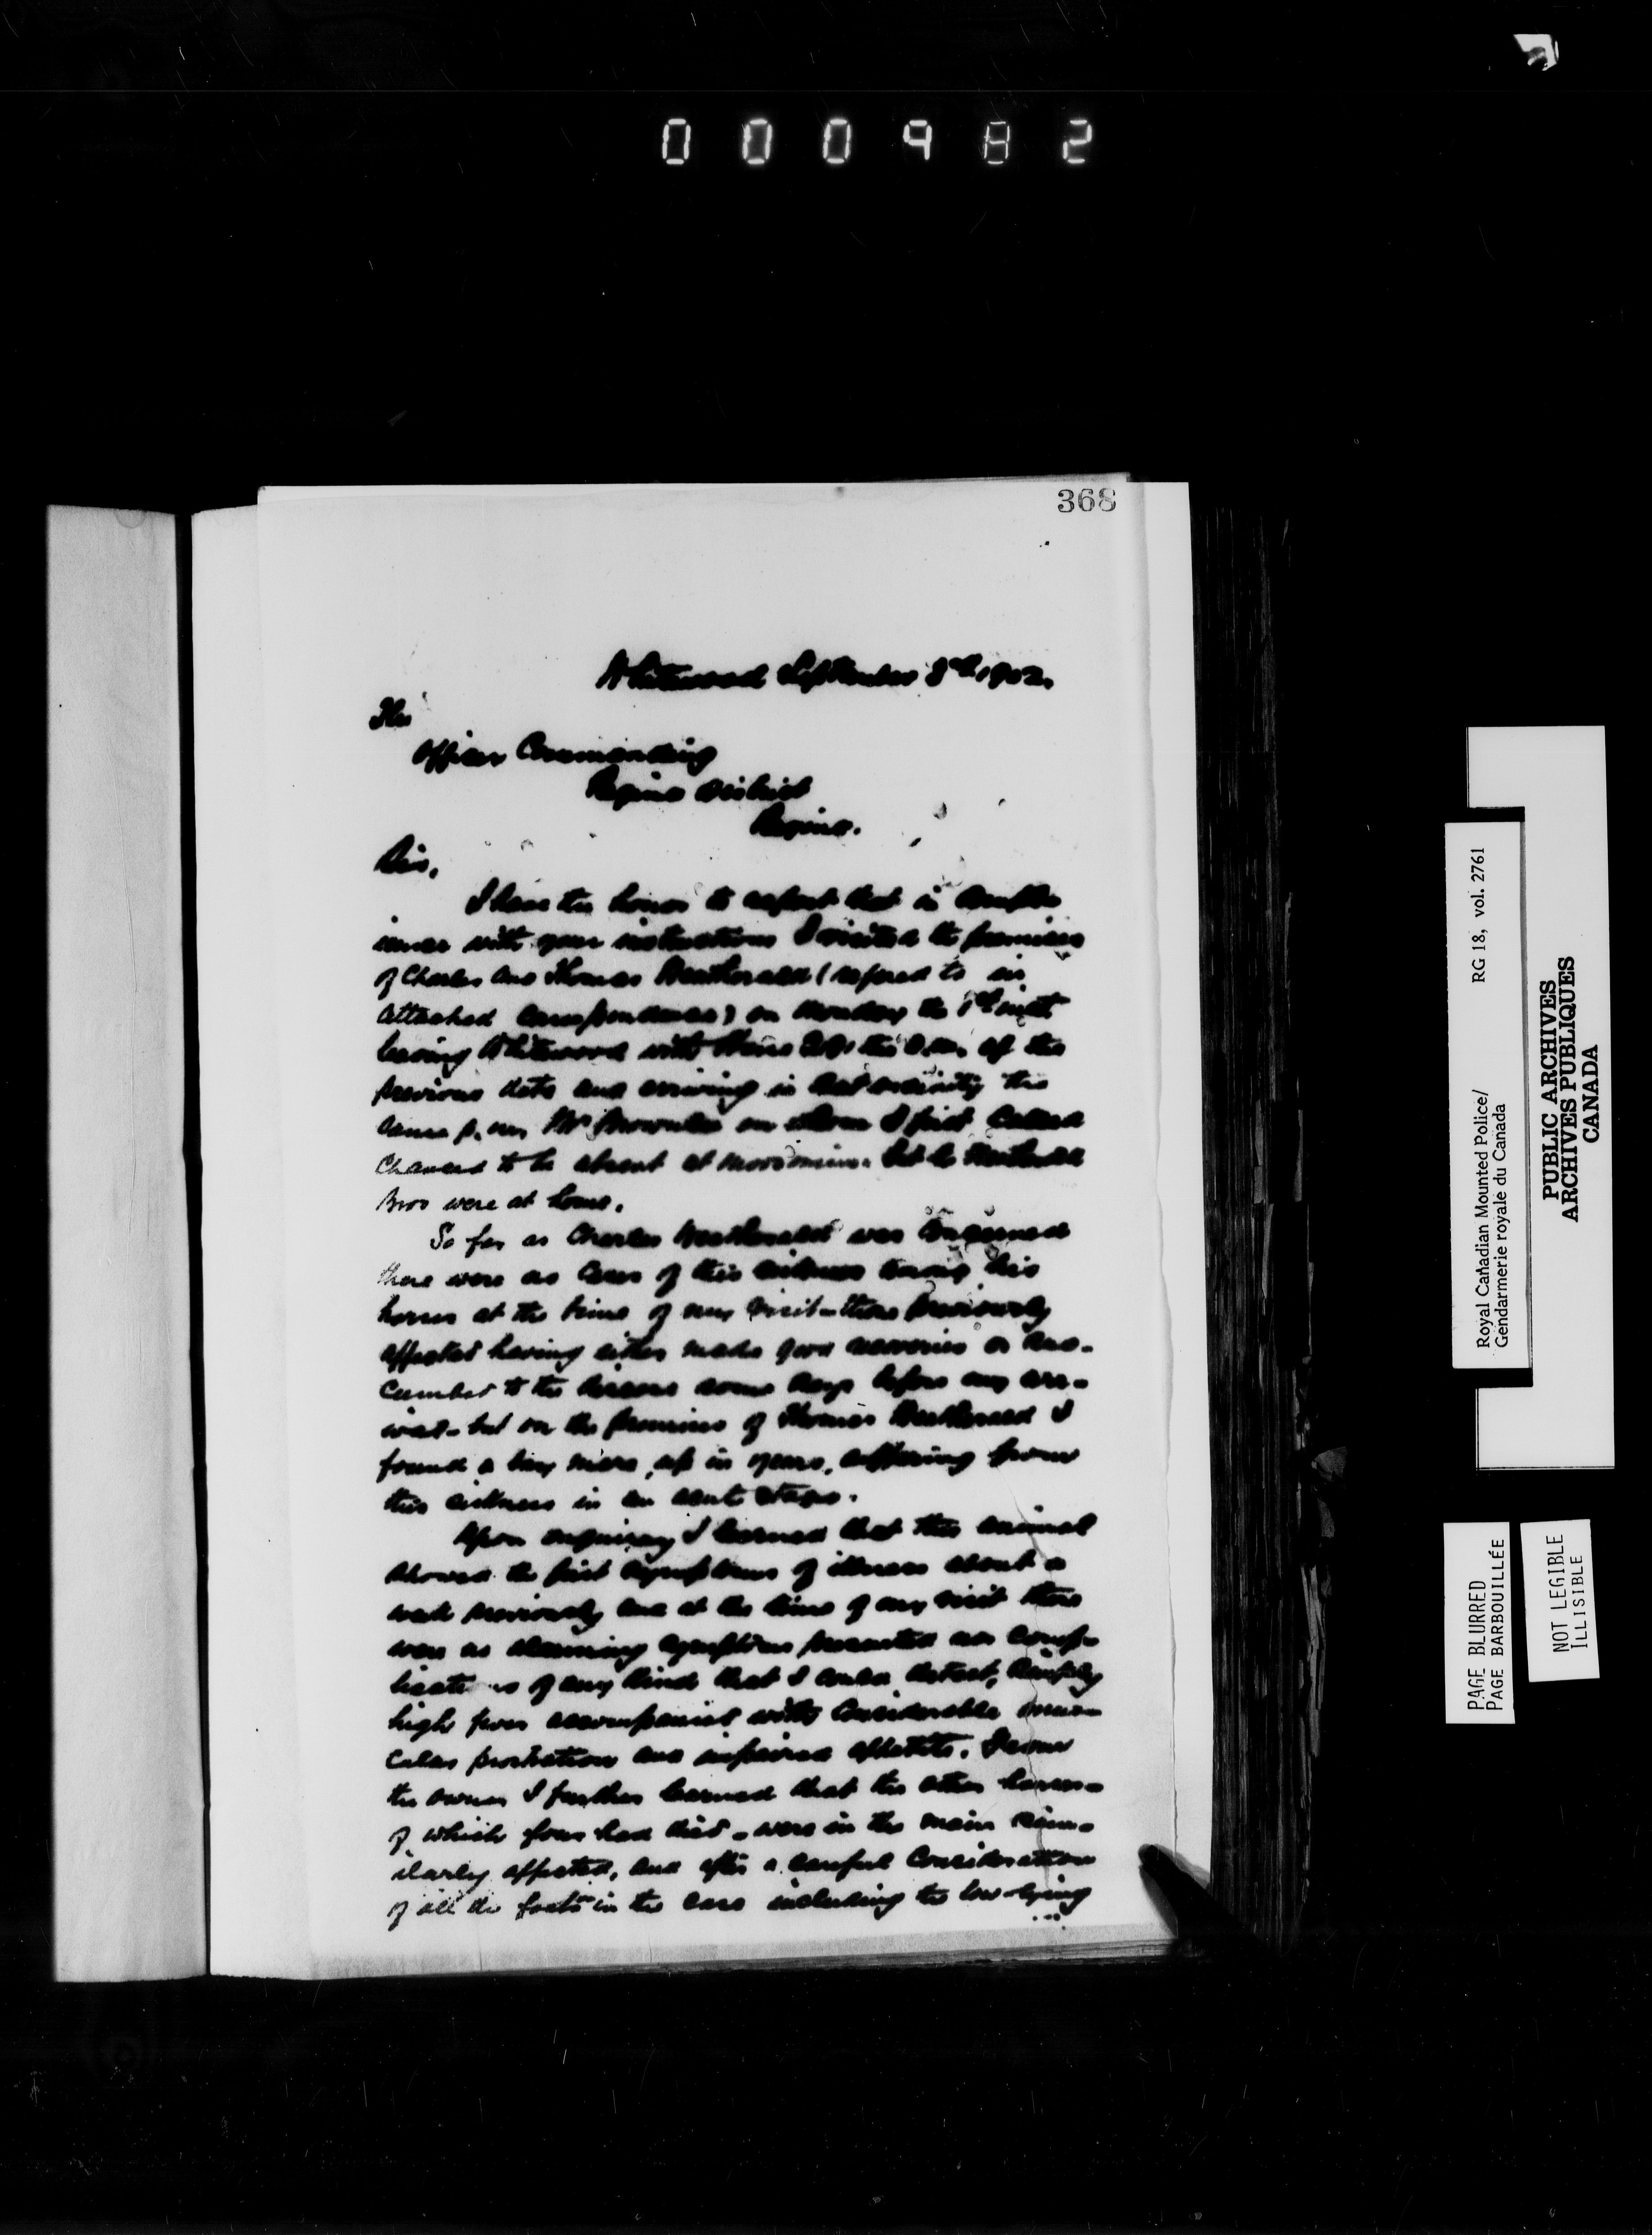 000982
368
Whitewood September 8th 1902.
The
Officer Commanding
Regina District
Regina.
Sir,
I have the honor to report that in compli-
ance with your instructions I visited the premises
of Charles and Thomas (refered to in
attached correspondence) on Monday the 1st inst
leaving Whitewood with the a.m. of the
previous date and arriving in that vicinity the
same p.m. Mr on whom I first called
chanced to be absent at but the
Bros were at home.
So far as Charles was concerned
there were no cases of this sickness among his
horses at the time of my visit - those previously
affected having either made good recoveries or suc-
cumbed to the disease some days before my arr-
ival - but on the premises of Thomas I
found a bay mare, up in years, suffering from
this sickness in an acute stage.
Upon enquiry I learned that this animal
showed the first symptoms of illness about a
week previously and at the time of my visit there
were no alarming symptoms presented nor comp-
lications of any kind that I could detect, simply
high fever accompanied with considerable mus-
cular prostration and impaired appetite. From
the owner I further learned that the other horses -
of which four had died - were in the main sim-
ilarly affected, and after a careful consideration
of all the facts in the case including the low-lying
...
RG 18, vol. 2761
Royal Canadian Mounted Police/
Gendarmerie royale du Canada
PUBLIC ARCHIVES
ARCHIVES PUBLIQUES
CANADA
PAGE BLURRED
PAGE BARBOUILLÉE
NOT LEGIBLE
ILLISIBLE